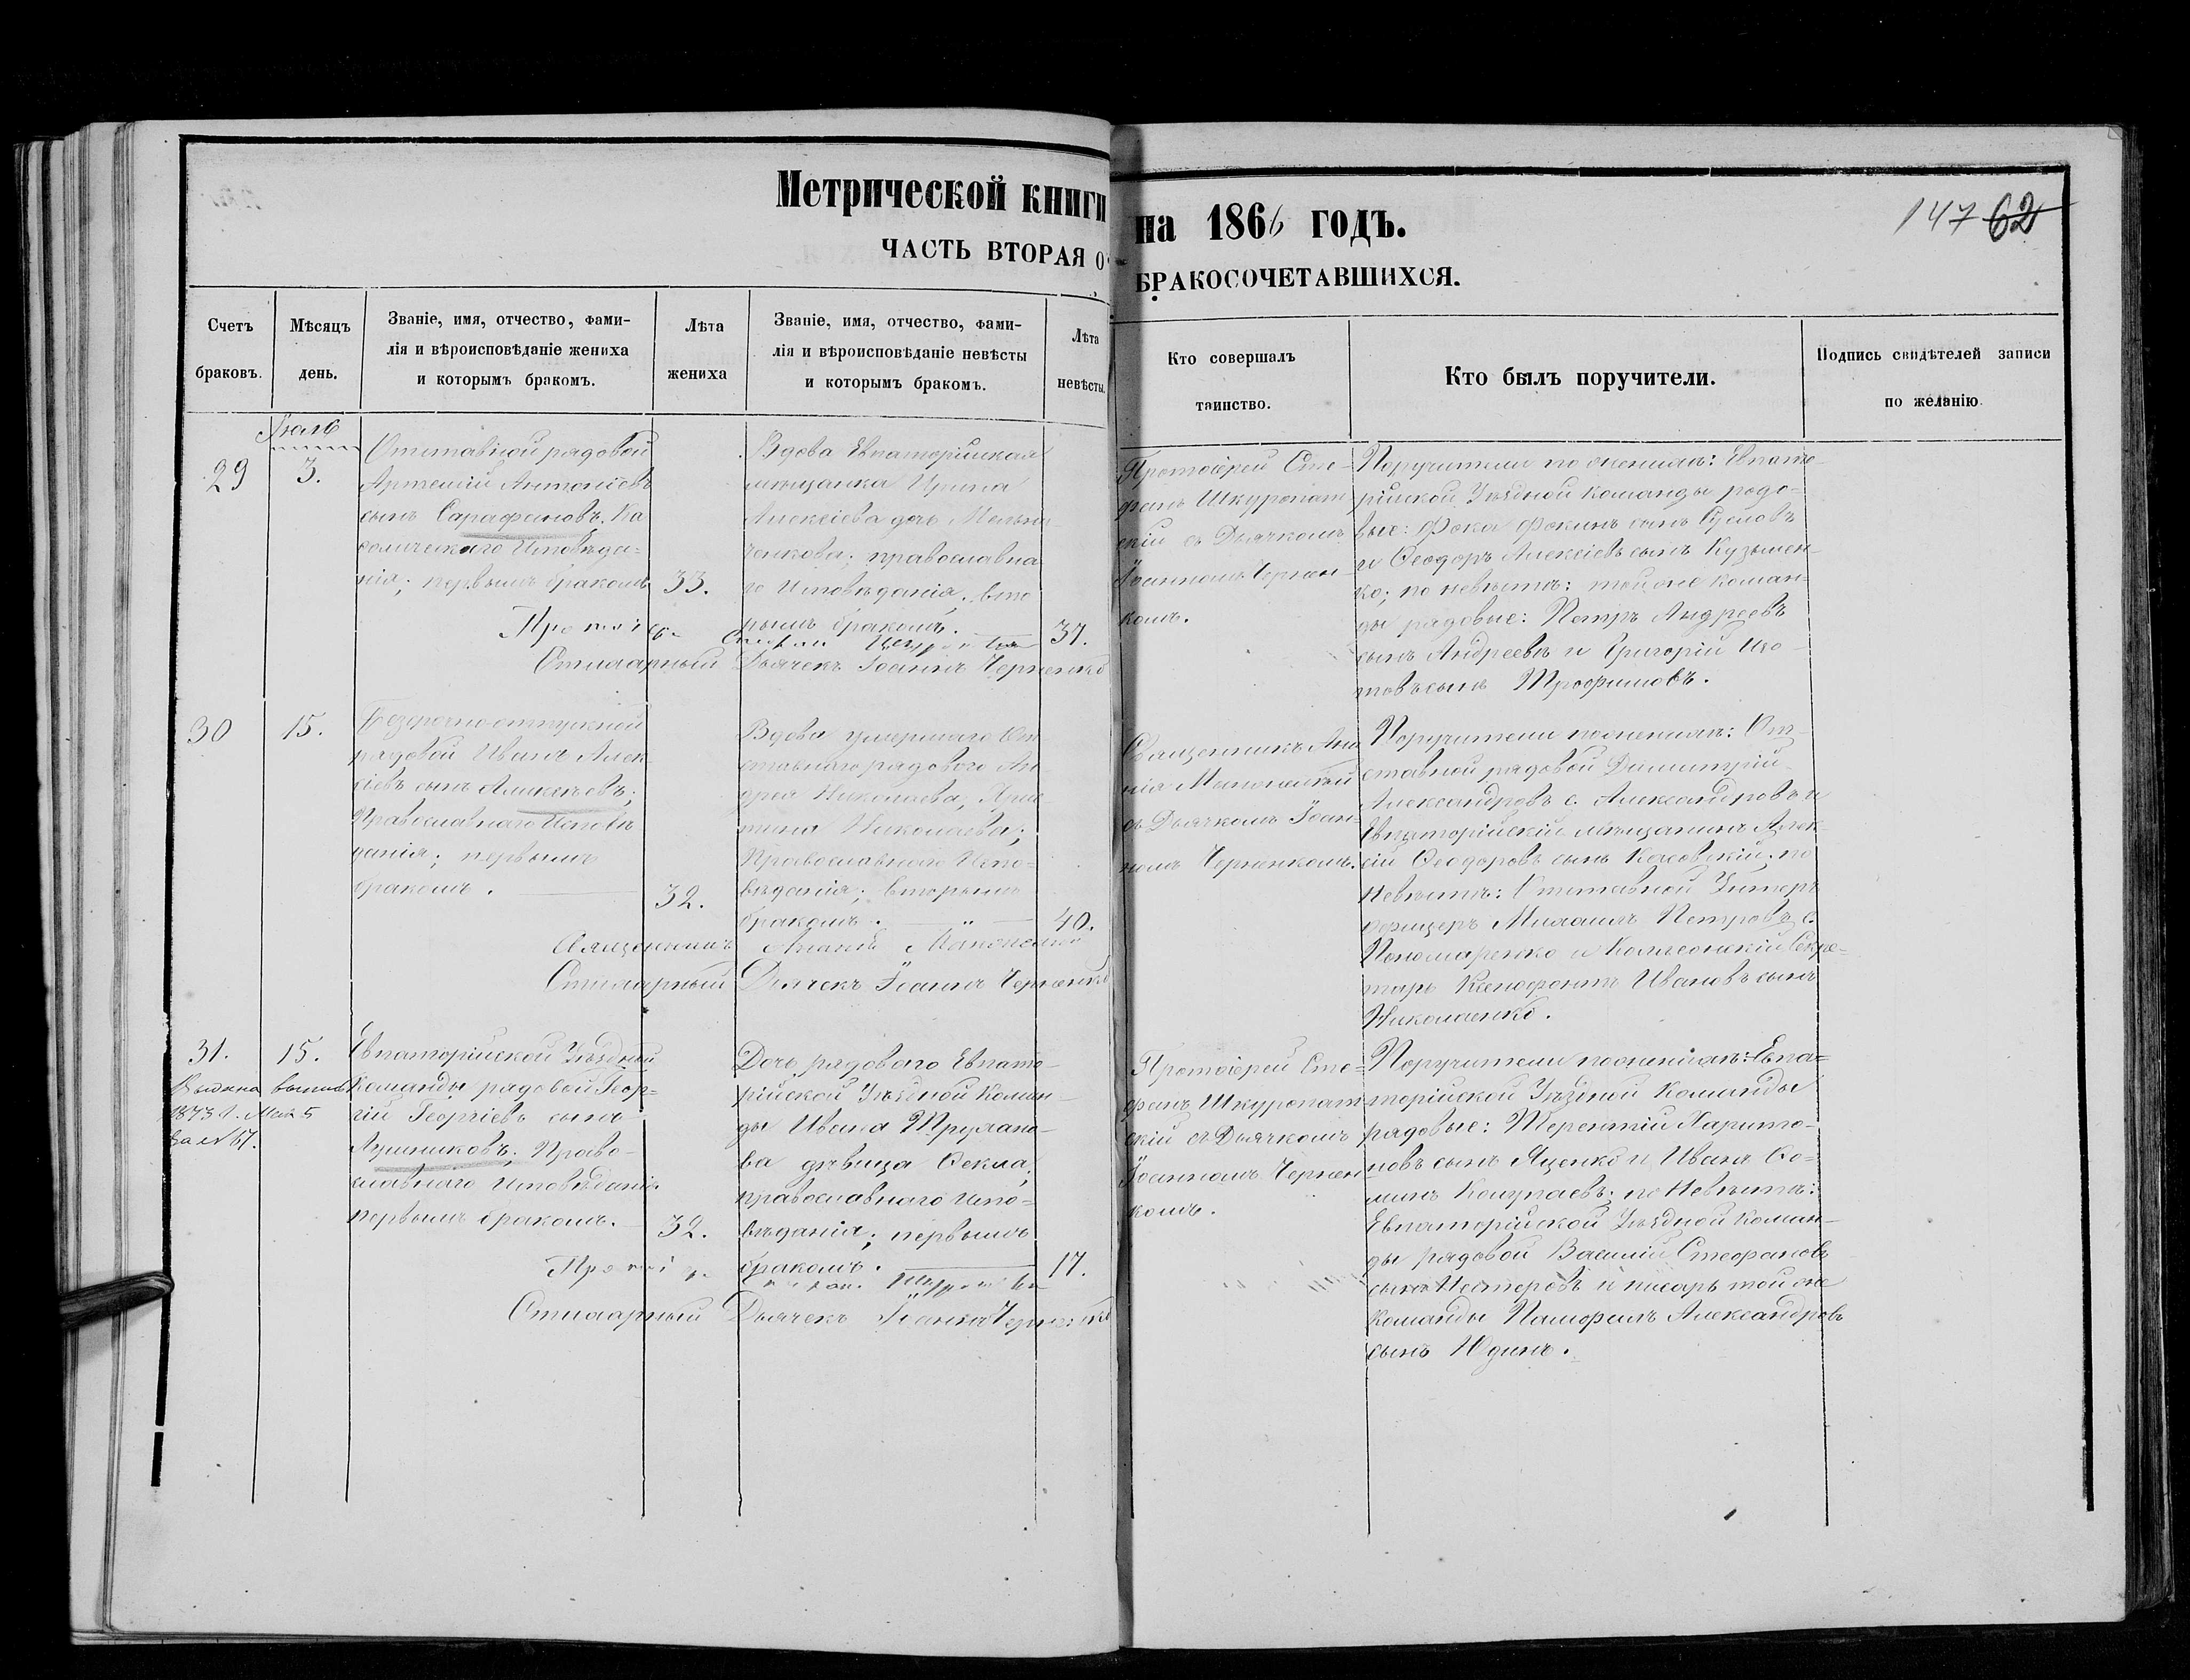 Метрической книги на 1866 годъ.
147 62
ЧАСТЬ ВТОРАЯ О БРАКОСОЧЕТАВШИХСЯ.
Счетъ браковъ.
Мѣсяцъ день.
Званіе, имя, отчество, фами-
лія и вѣроисповѣданіе жениха
и которымъ бракомъ.
Лѣта жениха
Званіе, имя, отчество, фами-
лія и вѣроисповѣданіе невѣсты
и которымъ бракомъ.
Лѣта невѣсты.
Кто совершалъ
таинство.
Кто былъ поручители.
Подпись свидѣтелей записи
по желанію.
29
3.
Отставной рядовой
Артемій Антоніевъ
сынъ Сарафановъ. Ка
толическаго Исповѣда-
нія; первымъ бракомъ
33.
Вдова Евпаторійская
мѣщанка Ирина
Алексіева дочь
православна
го Исповѣданія; вто
рымъ бракомъ.
37.
Протоіер. Стефан
Стихарный Дьячекъ Іоаннъ Черненко
Протоіерей Сте-
фанъ Шкуропат
скій съ Дьячкомъ
Іоанномъ Чернен-
комъ.
Поручители по женихѣ: Евпато-
рійской Уѣздной команды рядо-
вые: Фока Фокинъ сынъ
и Ѳеодоръ Алексіевъ сынъ Кузьмен-
ко; по невѣстѣ: той же коман-
ды рядовые: Петръ Андреевъ
сынъ Андреевъ и Григорій Изо-
товъ сынъ Трофимовъ.
30
15.
Безсрочно-отпускной
рядовой Иванъ Алек
сіевъ сынъ Алексѣевъ;
Православнаго Исповѣ
данія; первымъ
бракомъ.
32.
Вдова умершаго От
ставнаго рядового Ан
дрея Николаева,
Николаева;
Православнаго Испо-
вѣданія; вторымъ
бракомъ.
40.
Священникъ
Стихарный Дьячекъ Іоаннъ Черненко
Священникъ Ана
нія
съ Дьячкомъ Іоан-
номъ Черненкомъ.
Поручители по женихѣ: От-
ставной рядовой Димитрій
Александровъ с. Александровъ и
Евпаторійскій мѣщанинъ Алек-
сій Ѳеодоровъ сынъ по
Невѣстѣ: Отставной Унтеръ
офицеръ Михаилъ Петровъ с.
Пономаренко и Коллежскій Секре-
тарь Ксенофонтъ Ивановъ сынъ
Николаенко.
31.
15.
Выдана выпись
1873 г. Мая 5
за № 67.
Евпаторійской Уѣздной
Команды рядовой Геор-
гій Георгіевъ сынъ
Лушниковъ; Право-
славнаго исповѣданія
первымъ бракомъ.
32.
Дочь рядового Евпато-
рійской Уѣздной Коман-
ды Ивана Трухано-
ва дѣвица Ѳекла;
православнаго испо-
вѣданія; первымъ
бракомъ.
17.
Стихарный Дьячекъ Іоаннъ Черненко
Протоіерей Сте-
фанъ Шкуропат
скій съ Дьячкомъ
Іоанномъ Чернен
комъ.
Поручители по женихѣ: Евпа-
торійской Уѣздной Команды
рядовые: Терентій Харито-
новъ сынъ Яценко и Иванъ Ѳо-
минъ Колупаевъ; по Невѣстѣ:
Евпаторійской Уѣздной Коман-
ды рядовой Василій Стефановъ
сынъ Нестеровъ и писарь той же
Команды Памфилъ Александровъ
сынъ Юдинъ.